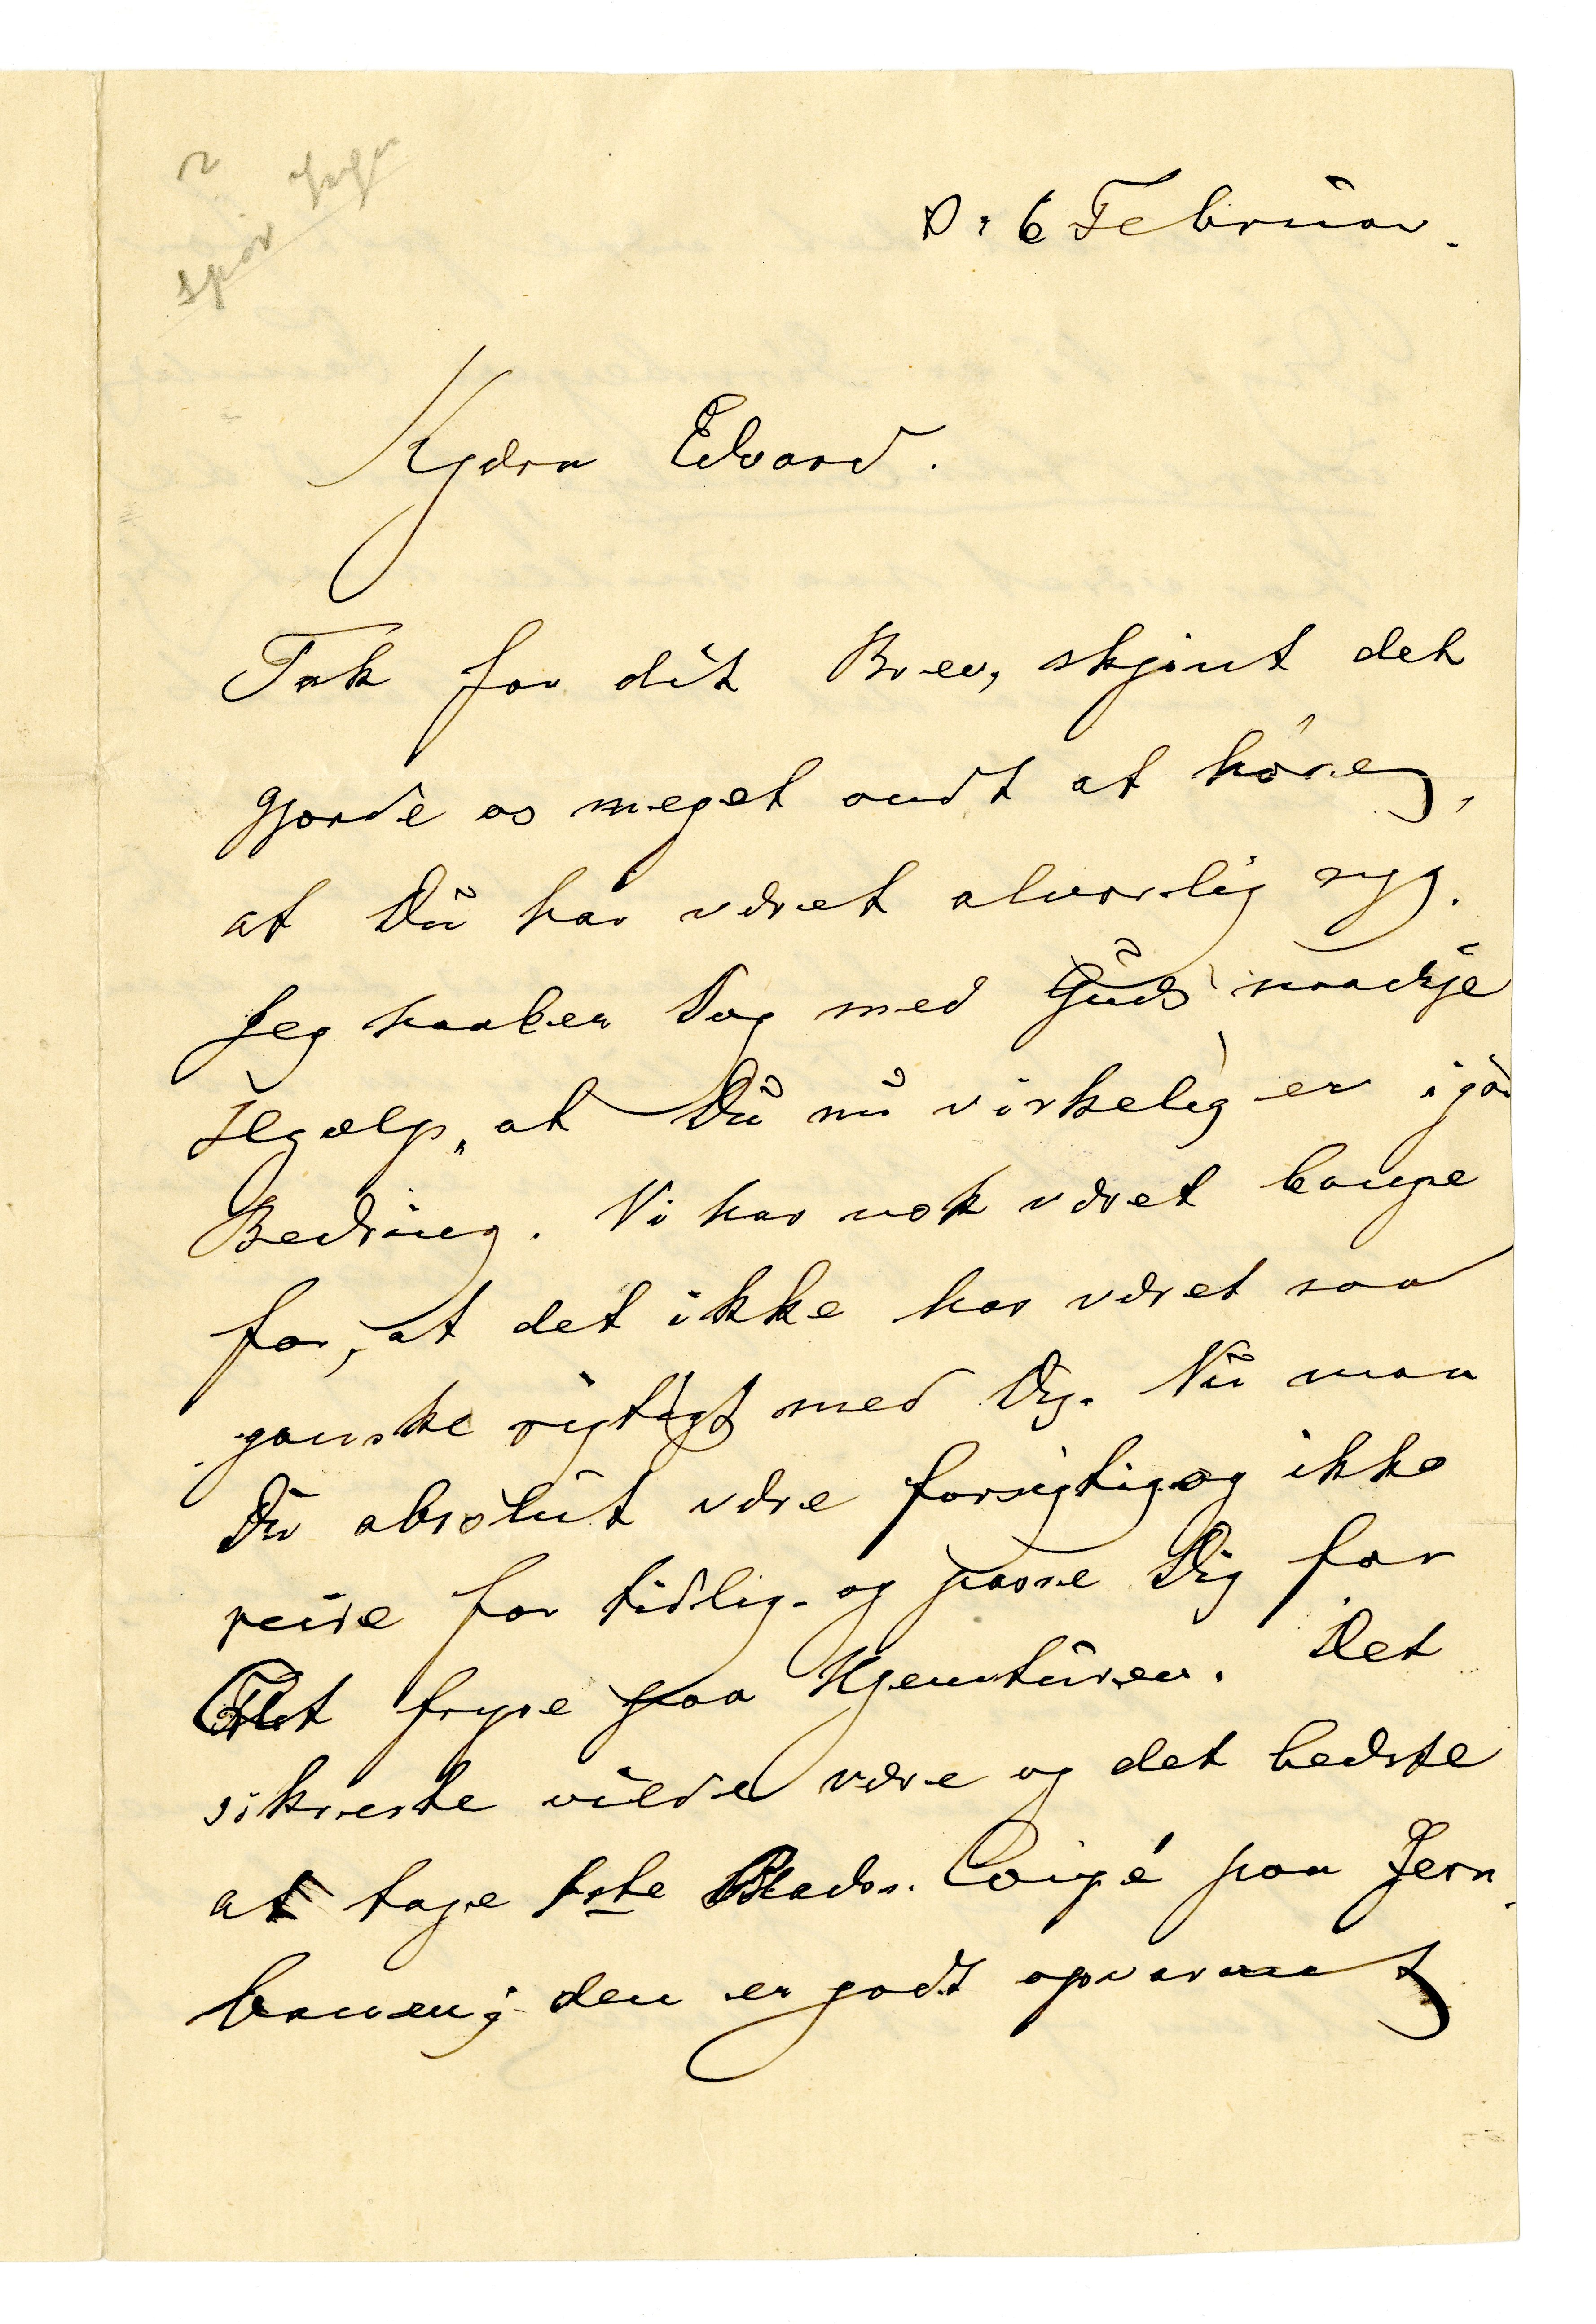 D: 6 Februar.
Kjære Edvard.
Tak for dit Brev, skjønt det
gjorde os meget ondt at høre,
at Du har været alvorlig syg.
Jeg haaber Dog med Guds naadige
Hjælp, at Du nu virkelig er i god
Bedring. Vi har nok været bange
for, at det ikke har været saa
ganske rigtigt med Dig. Nu maa
Du absolut være forsigtig og ikke
reise for tidlig. og passe Dig for
at fryse paa Hjemturen. Det
sikreste vilde være og det bedste
at tage 1ste Klads. Coupé paa Jern
banen; den er godt opvarmet